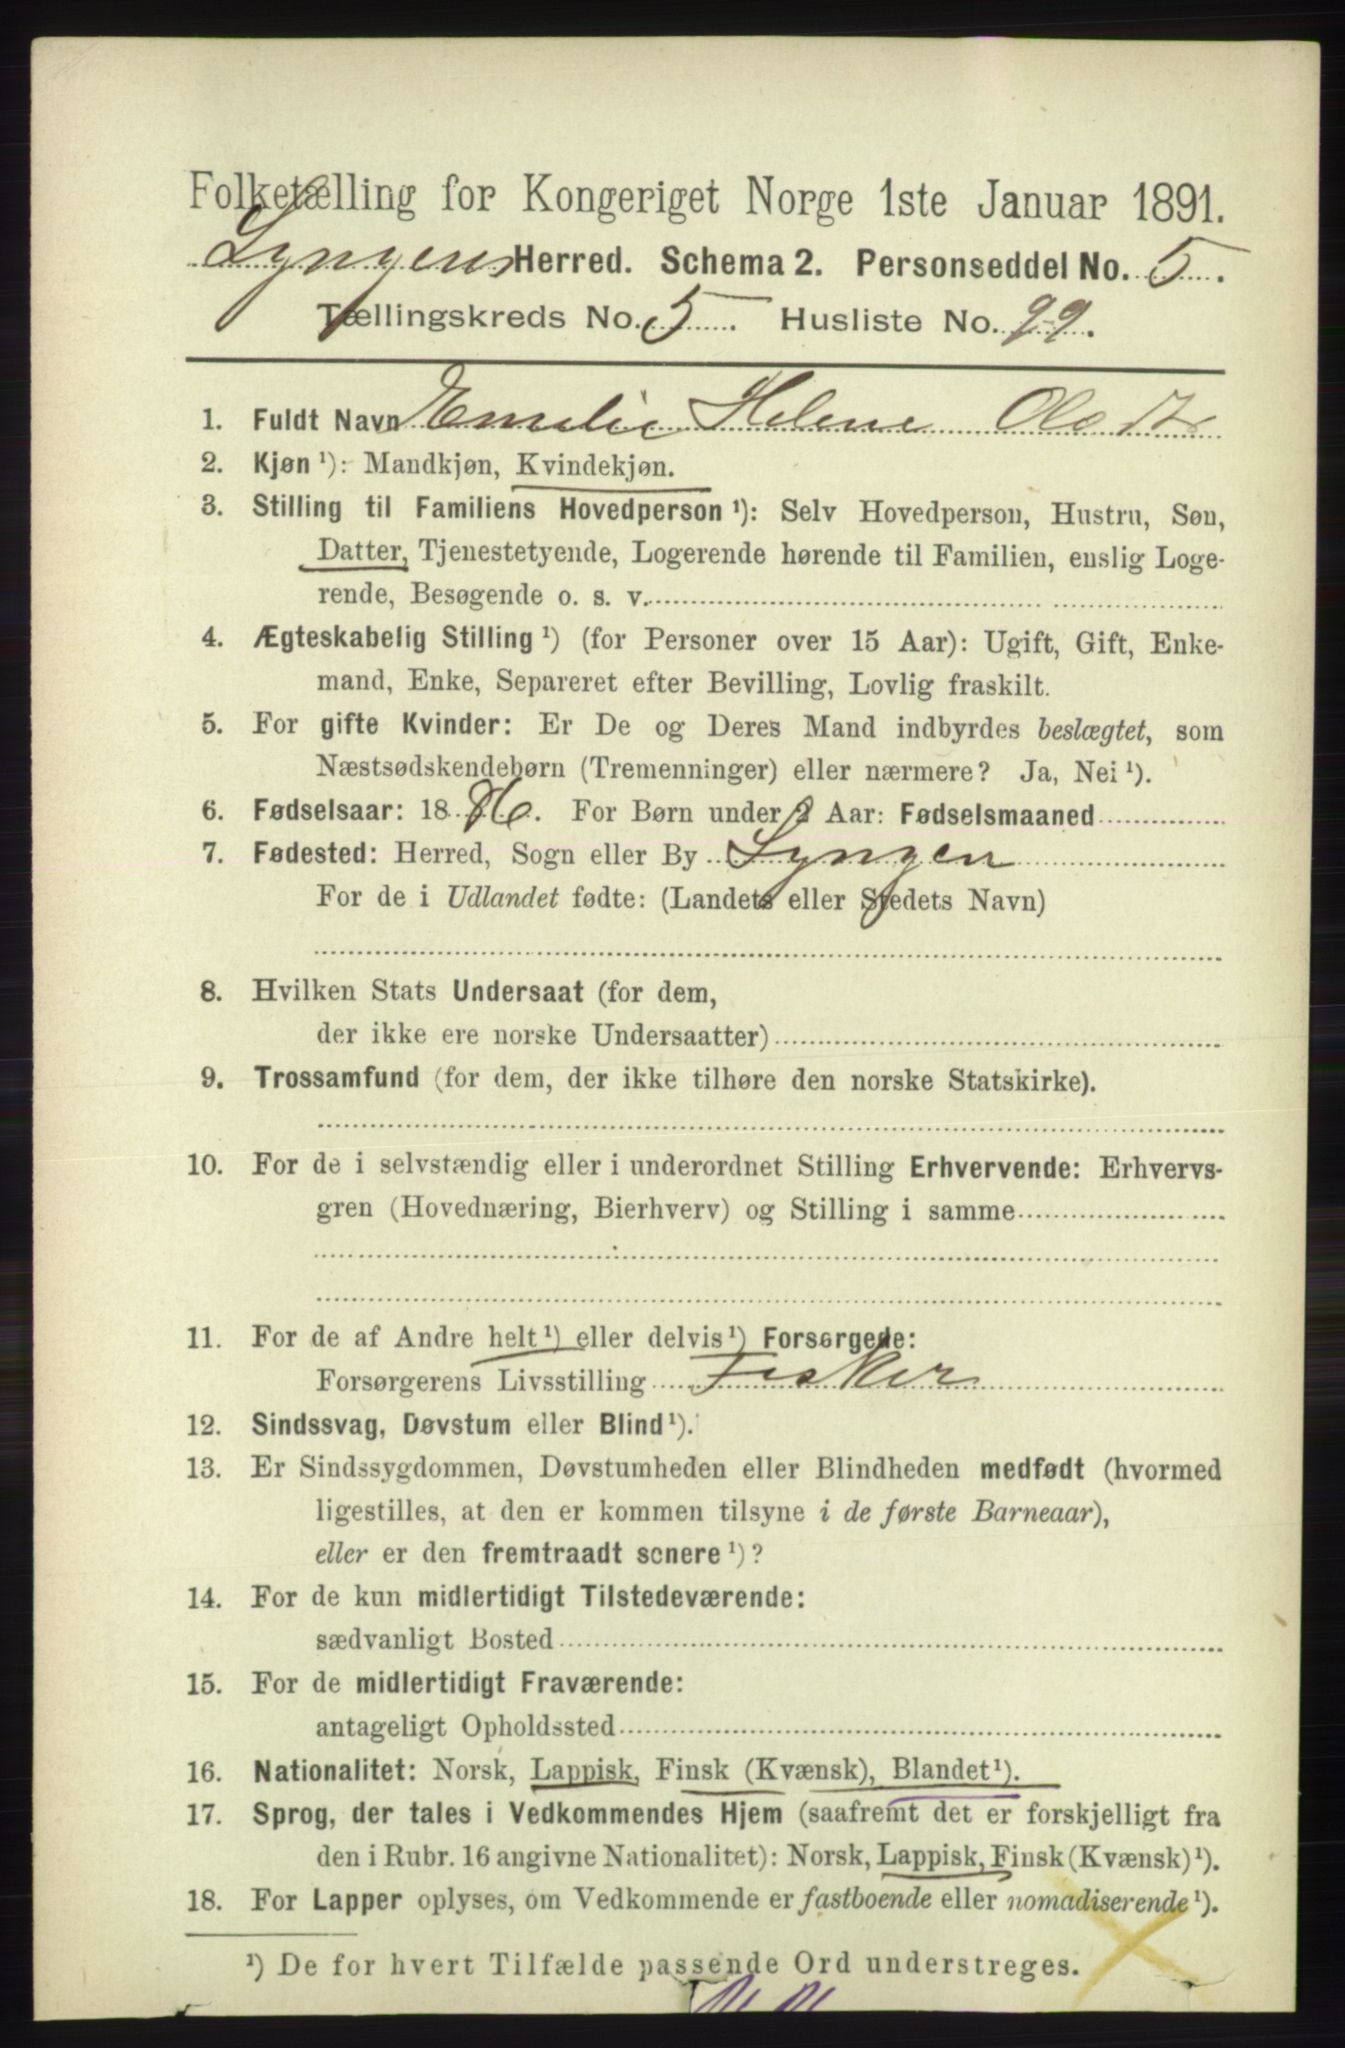 Folketælling for Kongeriget Norge 1ste Januar 1891.
Lyngens Herred. Schema 2. Personseddel No. 5.
Tællingskreds No. 5. Husliste No. 99.
1. Fuldt Navn Emelie Helene Olsdtr
2. Kjøn ¹): Mandkjøn, Kvindekjøn.
3. Stilling til Familiens Hovedperson ¹): Selv Hovedperson, Hustru, Søn,
Datter, Tjenestetyende, Logerende hørende til Familien, enslig Loge-
rende, Besøgende o. s. v.
4. Ægteskabelig Stilling ¹) (for Personer over 15 Aar): Ugift, Gift, Enke-
mand, Enke, Separeret efter Bevilling, Lovlig fraskilt.
5. For gifte Kvinder: Er De og Deres Mand indbyrdes beslægtet, som
Næstsødskendebørn (Tremenninger) eller nærmere? Ja, Nei ¹).
6. Fødselsaar: 1886. For Børn under 2 Aar: Fødselsmaaned
7. Fødested: Herred, Sogn eller By Lyngen
For de i Udlandet fødte: (Landets eller Stedets Navn)
8. Hvilken Stats Undersaat (for dem,
der ikke ere norske Undersaatter)
9. Trossamfund (for dem, der ikke tilhøre den norske Statskirke).
10. For de i selvstændig eller i underordnet Stilling Erhvervende: Erhvervs-
gren (Hovednæring, Bierhverv) og Stilling i samme
11. For de af Andre helt ¹) eller delvis ¹) Forsørgede:
Forsørgerens Livsstilling Fisker
12. Sindssvag, Døvstum eller Blind ¹).
13. Er Sindssygdommen, Døvstumheden eller Blindheden medfødt (hvormed
ligestilles, at den er kommen tilsyne i de første Barneaar),
eller er den fremtraadt senere ¹)?
14. For de kun midlertidigt Tilstedeværende:
sædvanligt Bosted
15. For de midlertidigt Fraværende:
antageligt Opholdssted
16. Nationalitet: Norsk, Lappisk, Finsk (Kvænsk), Blandet ¹).
17. Sprog, der tales i Vedkommendes Hjem (saafremt det er forskjelligt fra
den i Rubr. 16 angivne Nationalitet): Norsk, Lappisk, Finsk (Kvænsk) ¹).
18. For Lapper oplyses, om Vedkommende er fastboende eller nomadiserende ¹).
¹) De for hvert Tilfælde passende Ord understreges.